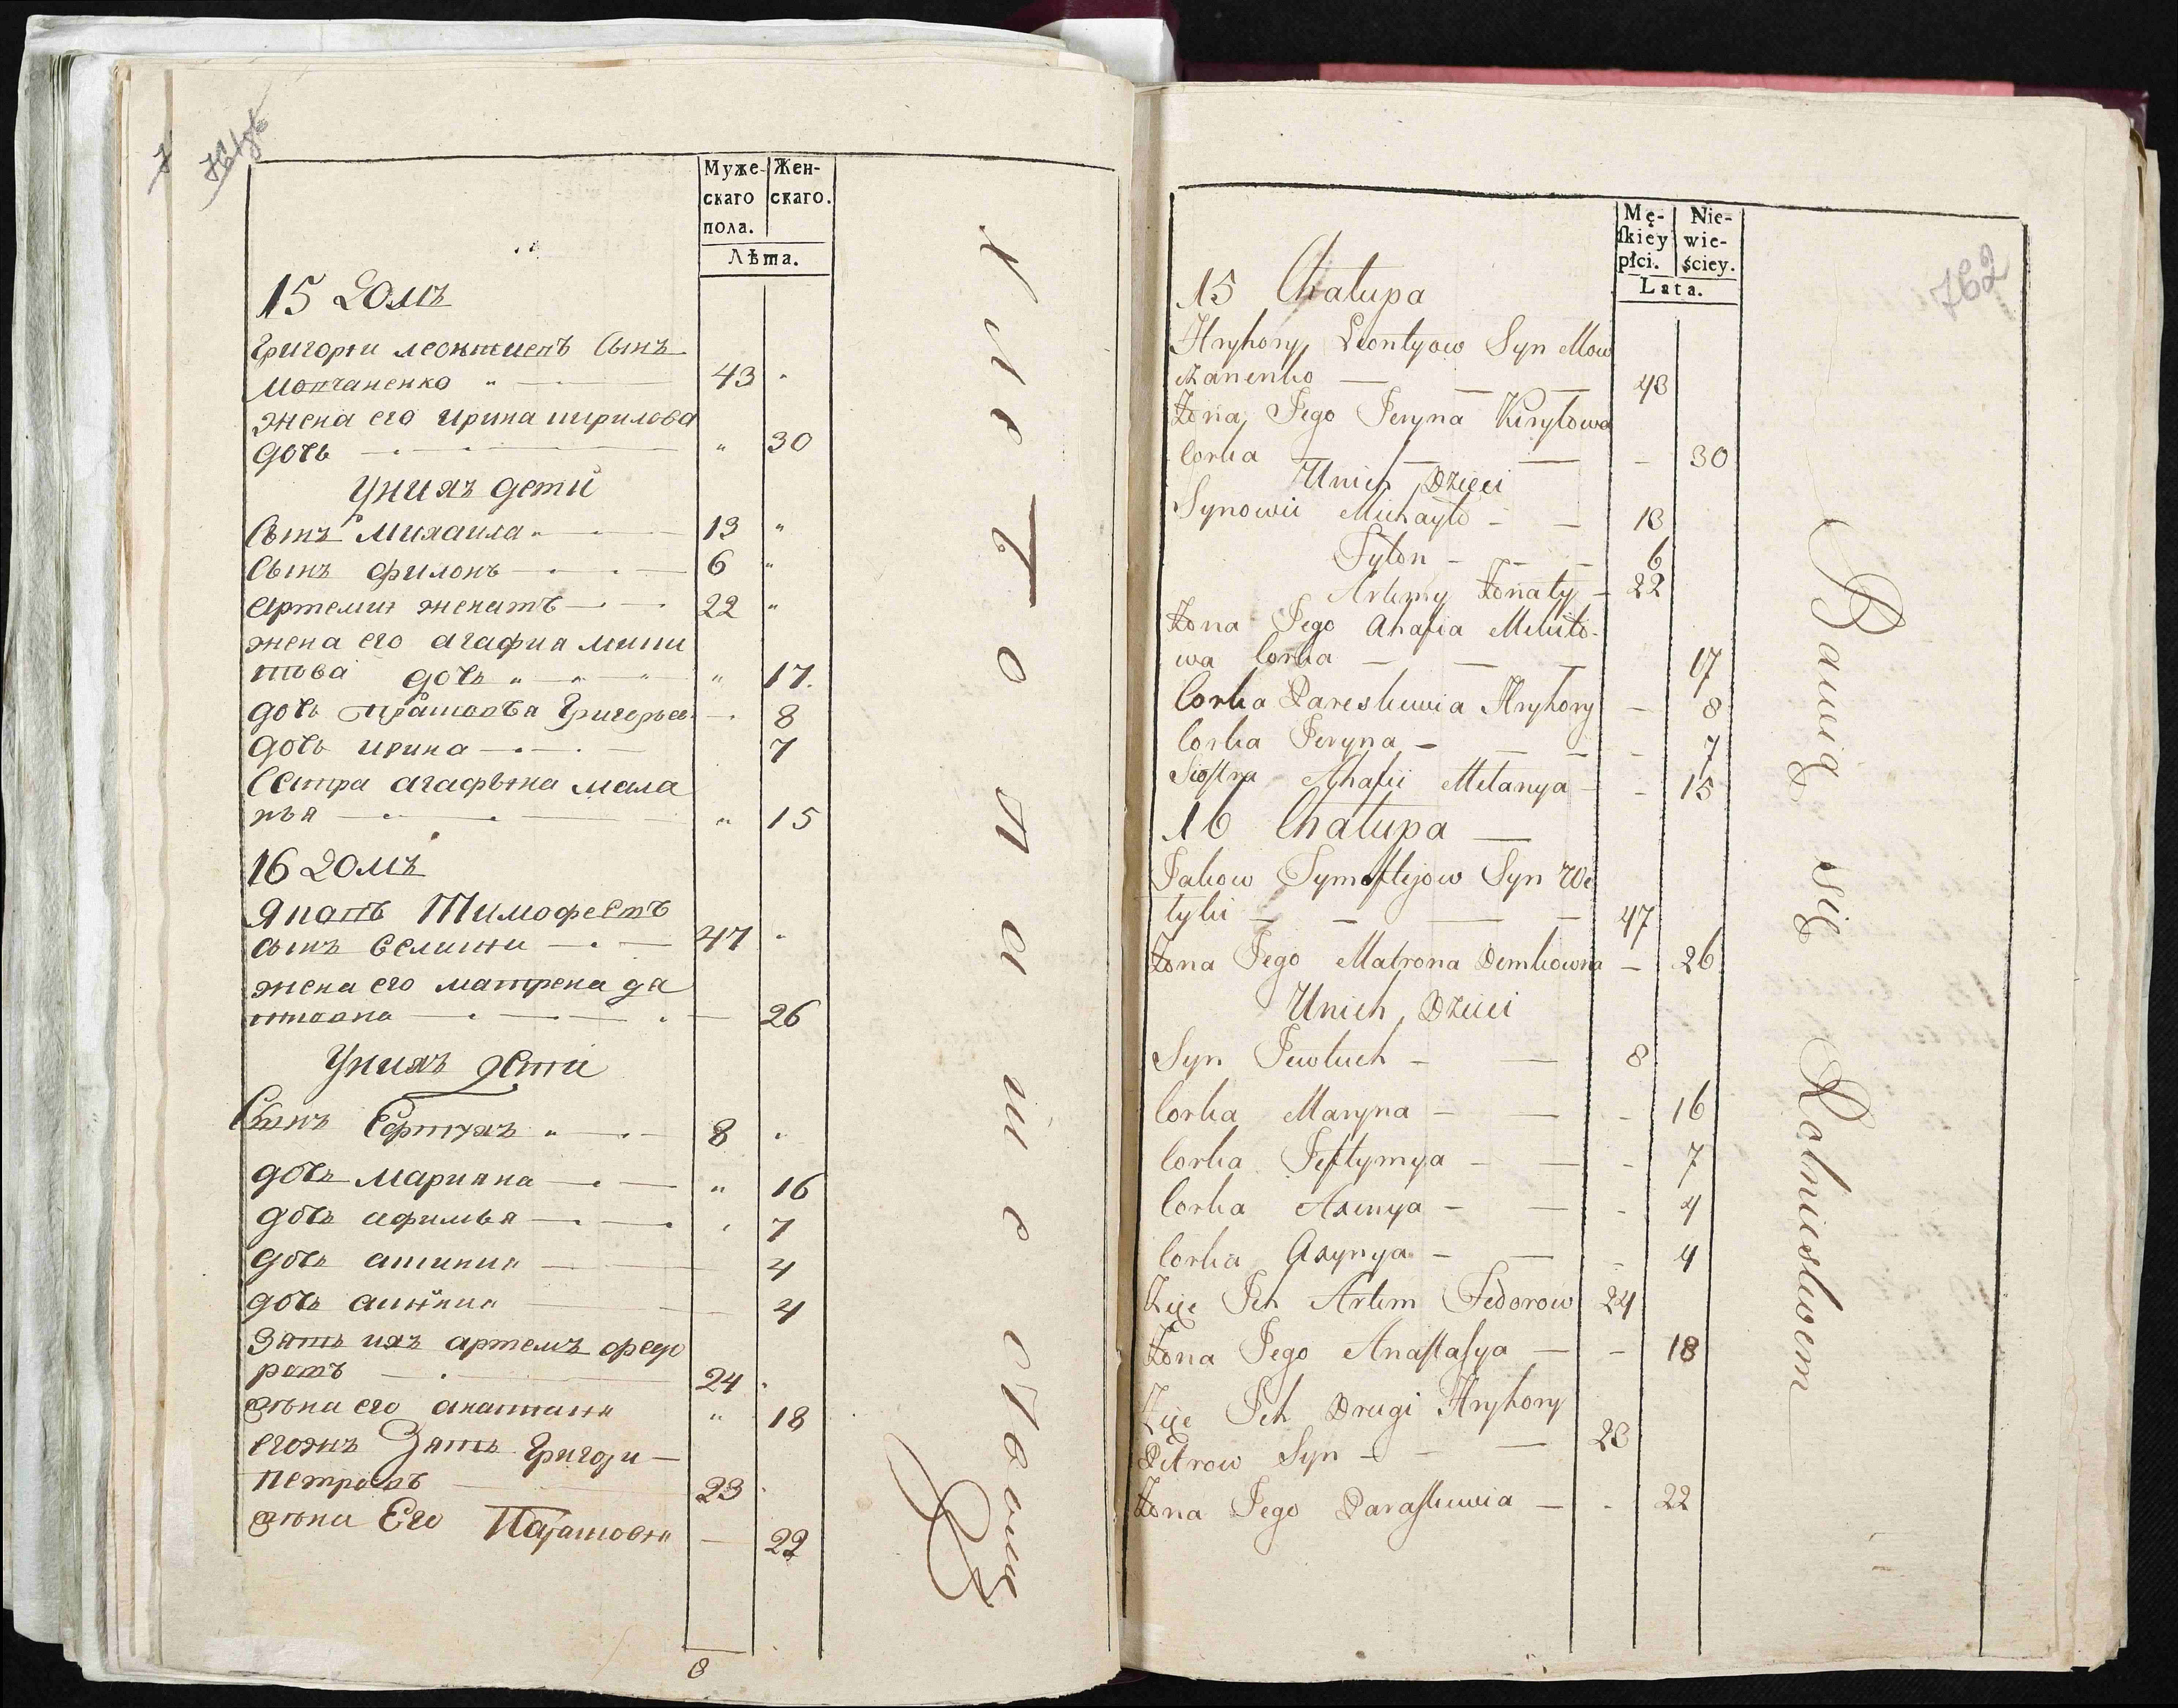 Муже-
скаго
пола.
Жен-
скаго.
Лѣта.
15 домъ
Григории леонтиевъ Сынъ
мовчаненко 43
жена его ирина кирилова
дочь 30
У них дети
Сынъ Михаила 13
Сынъ филонъ 6
Артемии женатъ 22
жена его агафия мики
това дочь 17.
дочь Григорьев 8
дочь ирина 7
Сестра агафьина мала
нья 15
16 домъ
Яковъ Тимофеевъ
сынъ Великии 47
жена его матрена де
26
У нихъ дети
Сынъ Евтухъ 8
дочь Мариана 16
дочь афимья 7
дочь 4
дочь 4
Зять ихъ артемъ федо
ровъ 24
жена его анастасия 18
его жъ Зять Григори
петровъ 23
жена Его 22
8
762
Mę-
skiey
płci.
Nie-
wie-
ściey.
Lata.
15 Chałupa
Hryhory Leontyow Syn Mow
czanenko 43
Żona Jego Jeryna Kiryłowa
Corka 30
Unich Dzieci
Synowii Michayło 13
Fylon 6
Artemy Żonaty 22
Żona Jego Ahafia Mikito-
wa Corka 17
Corka Pareskiewia Hryhory 8
Corka Jeryna 7
Siostra Ahafii Melanya 15
16 Chałupa
Jakow Tymoftejow Syn We
lyki 47
Żona Jego Matrona Demkowna 26
Unich Dzieci
Syn Jewtuch 8
Corka Maryna 16
Corka Jeftymya 7
Corka Axenya 4
Corka Axynya 4
Zięć Ich Artem Fedorow 24
Żona Jego Anastasya 18
Zięć Ich Drugi Hryhory
Petrow Syn 23
Żona Jego Paraskiewia 22
Bawią się Rolnictwem